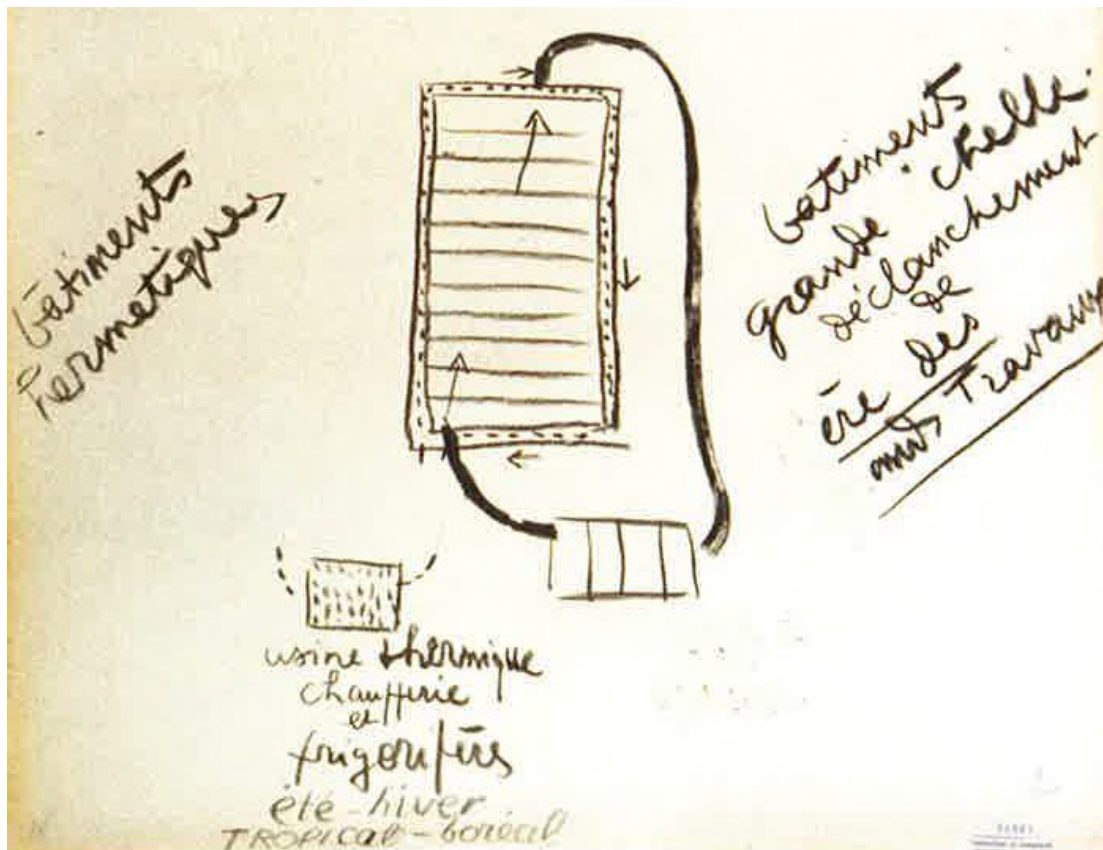 bâtiments
hermétiques
bâtiments
grande échelle
déclanchement
de
ère des
Travaux
usine thermique
chaufferie
et
frigorifères
été-hiver
TROPICAL-boréal